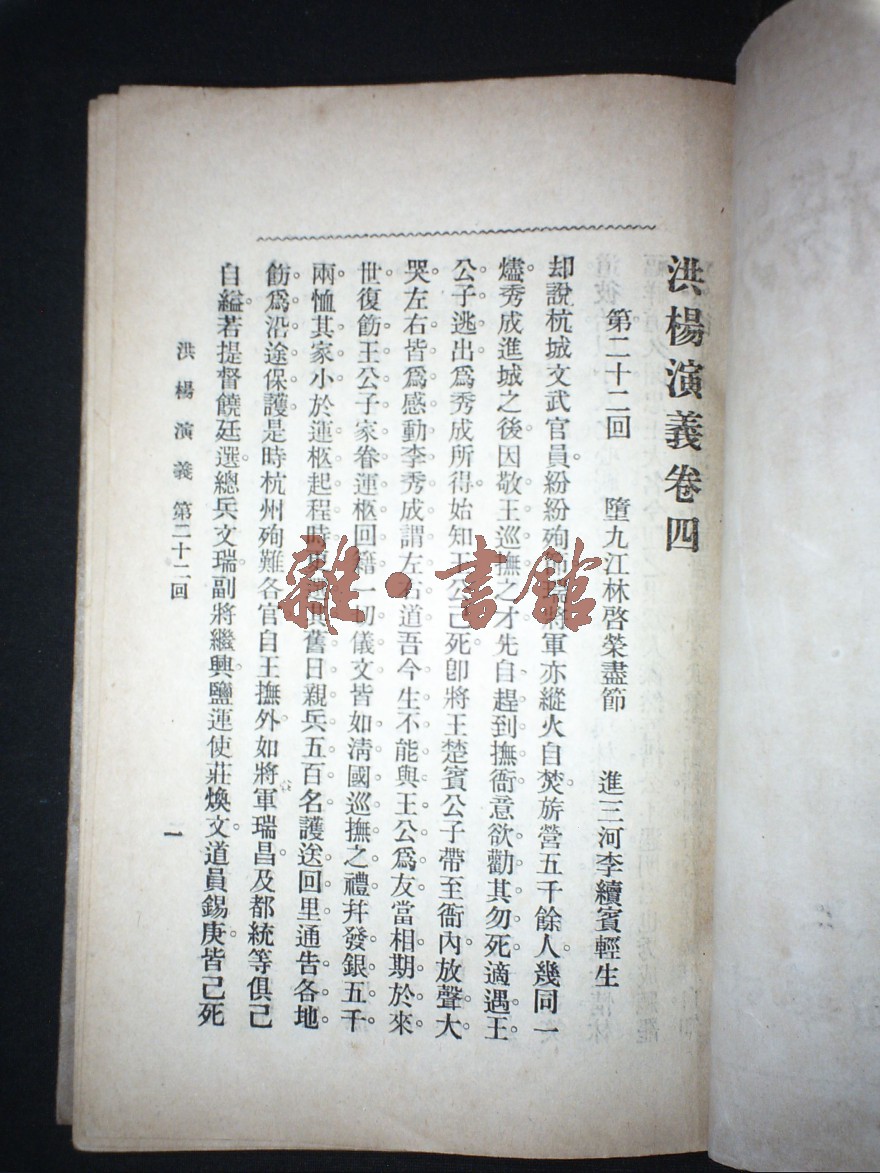 洪楊演義卷四
第二十二回 墮九江林啓榮盡節 進三河李續賓輕生
却說杭城文武官員紛紛殉節瑞將軍亦縱火自焚旂營五千餘人幾同一
燼秀成進城之後因敬王巡撫之才先自趕到撫衙意欲勸其勿死適遇王
公子逃出爲秀成所得始知王公已死卽將王楚賓公子帶至衙內放聲大
哭左右皆爲感動李秀成謂左右道吾今生不能與王公爲友當相期於來
世復飭王公子家眷運柩回籍一切儀文皆如淸國巡撫之禮幷發銀五千
兩恤其家小於運柩起程時舊日親兵五百名護送回里通告各地
飭爲沿途保護是時杭州殉難各官自王撫外如將軍瑞昌及都統等俱已
自縊若提督饒廷選總兵文瑞副將繼興鹽運使莊煥文道員錫庚皆已死
洪楊演義 第二十二回
一
雜·書館